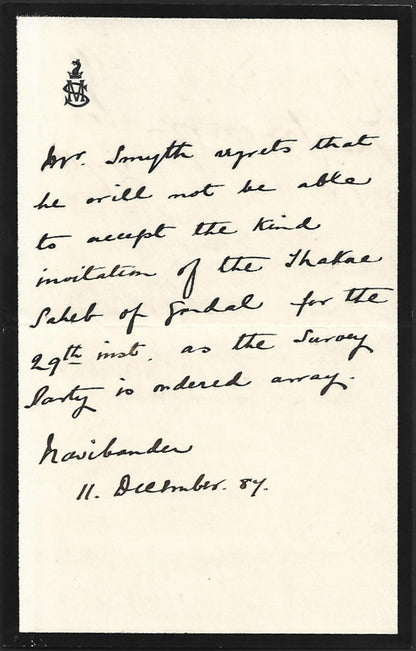 MS
Mr. Smyth regrets that
he will not be able
to accept the kind
invitation of the Thakore
Saheb of Gondal for the
29th inst. as the Survey
Party is ordered away.
Navibander
11. December. 87.